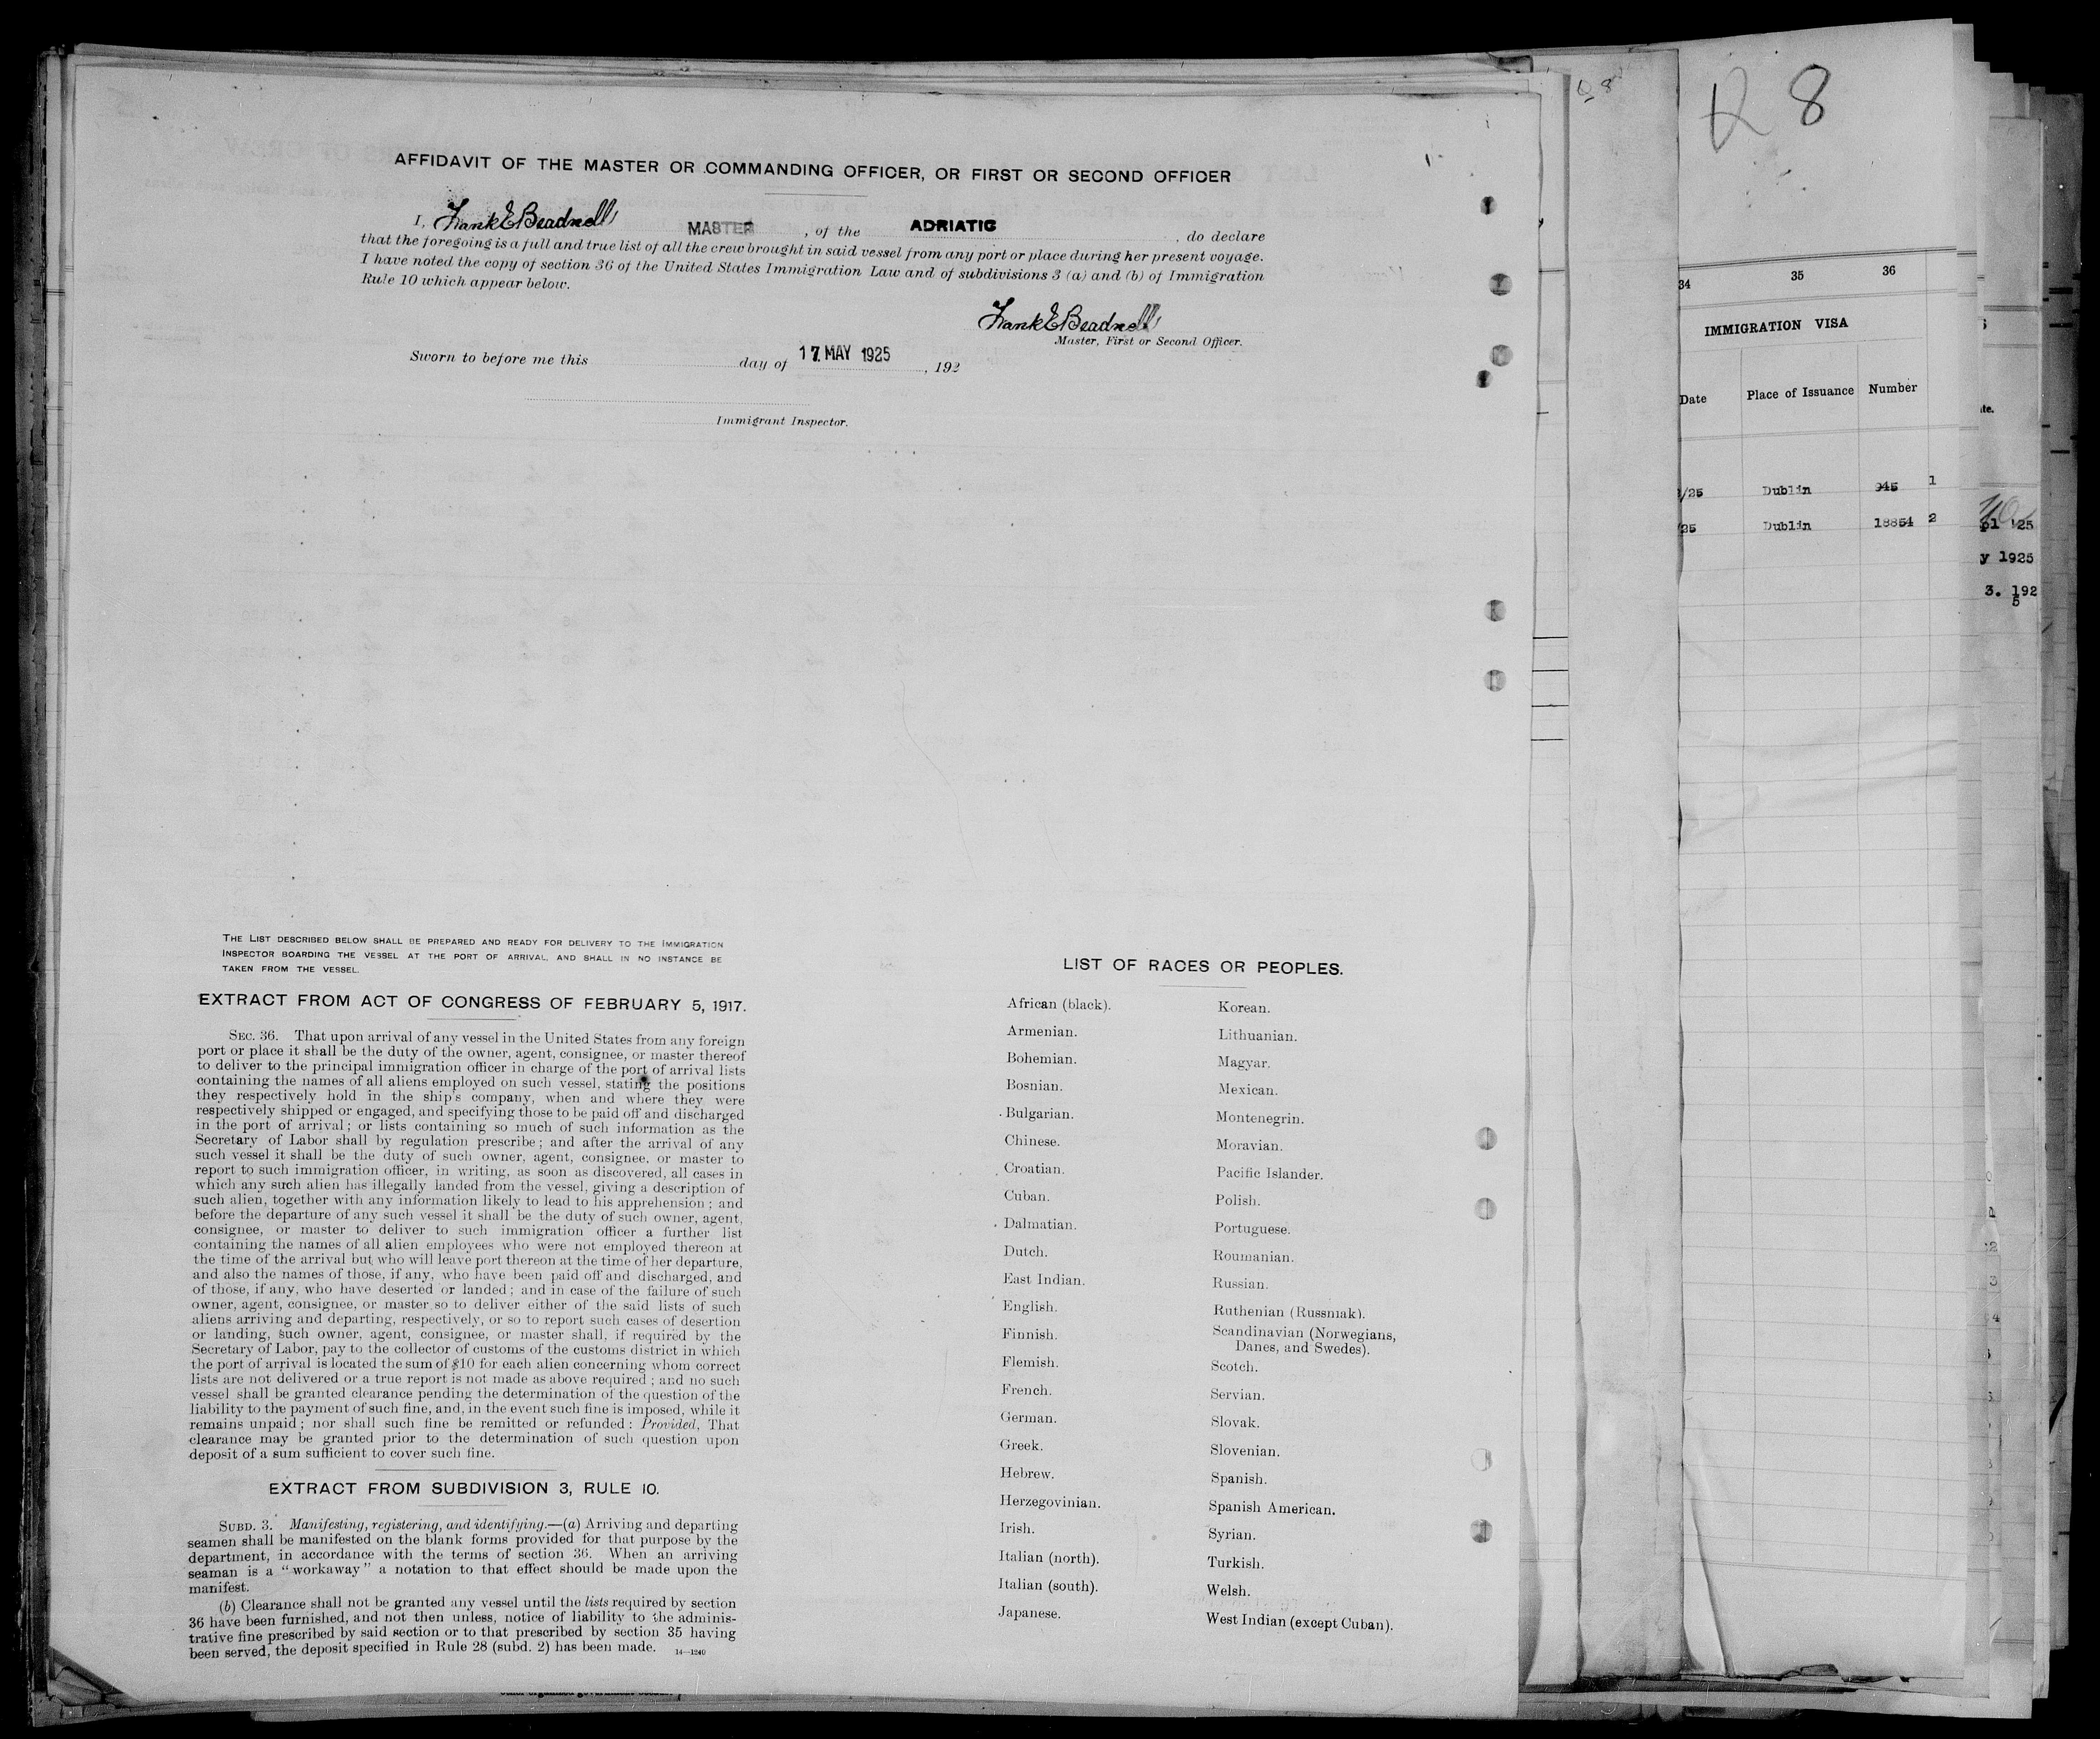 AFFIDAVIT OF THE MASTER OR COMMANDING OFFICER, OR FIRST OR SECOND OFFICER
I, Frank E Beadnell MASTER, of the ADRIATIC, do declare
that the foregoing is a full and true list of all the crew brought in said vessel from any port or place during her present voyage.
I have noted the copy of section 36 of the United States Immigration Law and of subdivisions 3 (a) and (b) of Immigration
Rule 10 which appear below.
Frank E Beadnell
Master, First or Second Officer.
Sworn to before me this day of 17 MAY 1925, 192
Immigrant Inspector.
THE LIST DESCRIBED BELOW SHALL BE PREPARED AND READY FOR DELIVERY TO THE IMMIGRATION
INSPECTOR BOARDING THE VESSEL AT THE PORT OF ARRIVAL, AND SHALL IN NO INSTANCE BE
TAKEN FROM THE VESSEL.
EXTRACT FROM ACT OF CONGRESS OF FEBRUARY 5, 1917.
SEC. 36. That upon arrival of any vessel in the United States from any foreign
port or place it shall be the duty of the owner, agent, consignee, or master thereof
to deliver to the principal immigration officer in charge of the port of arrival lists
containing the names of all aliens employed on such vessel, stating the positions
they respectively hold in the ship's company, when and where they were
respectively shipped or engaged, and specifying those to be paid off and discharged
in the port of arrival; or lists containing so much of such information as the
Secretary of Labor shall by regulation prescribe; and after the arrival of any
such vessel it shall be the duty of such owner, agent, consignee, or master to
report to such immigration officer, in writing, as soon as discovered, all cases in
which any such alien has illegally landed from the vessel, giving a description of
such alien, together with any information likely to lead to his apprehension; and
before the departure of any such vessel it shall be the duty of such owner, agent,
consignee, or master to deliver to such immigration officer a further list
containing the names of all alien employees who were not employed thereon at
the time of the arrival but who will leave port thereon at the time of her departure,
and also the names of those, if any, who have been paid off and discharged, and
of those, if any, who have deserted or landed; and in case of the failure of such
owner, agent, consignee, or master so to deliver either of the said lists of such
aliens arriving and departing, respectively, or so to report such cases of desertion
or landing, such owner, agent, consignee, or master shall, if required by the
Secretary of Labor, pay to the collector of customs of the customs district in which
the port of arrival is located the sum of $10 for each alien concerning whom correct
lists are not delivered or a true report is not made as above required; and no such
vessel shall be granted clearance pending the determination of the question of the
liability to the payment of such fine, and, in the event such fine is imposed, while it
remains unpaid; nor shall such fine be remitted or refunded: Provided, That
clearance may be granted prior to the determination of such question upon
deposit of a sum sufficient to cover such fine.
EXTRACT FROM SUBDIVISION 3, RULE 10.
SUBD. 3. Manifesting, registering, and identifying.—(a) Arriving and departing
seamen shall be manifested on the blank forms provided for that purpose by the
department, in accordance with the terms of section 36. When an arriving
seaman is a "workaway" a notation to that effect should be made upon the
manifest.
(b) Clearance shall not be granted any vessel until the lists required by section
36 have been furnished, and not then unless, notice of liability to the adminis-
trative fine prescribed by said section or to that prescribed by section 35 having
been served, the deposit specified in Rule 28 (subd. 2) has been made. 14—1240
LIST OF RACES OR PEOPLES.
African (black).
Armenian.
Bohemian.
Bosnian.
Bulgarian.
Chinese.
Croatian.
Cuban.
Dalmatian.
Dutch.
East Indian.
English.
Finnish.
Flemish.
French.
German.
Greek.
Hebrew.
Herzegovinian.
Irish.
Italian (north).
Italian (south).
Japanese.
Korean.
Lithuanian.
Magyar.
Mexican.
Montenegrin.
Moravian.
Pacific Islander.
Polish.
Portuguese.
Roumanian.
Russian.
Ruthenian (Russniak).
Scandinavian (Norwegians,
Danes, and Swedes).
Scotch.
Servian.
Slovak.
Slovenian.
Spanish.
Spanish American.
Syrian.
Turkish.
Welsh.
West Indian (except Cuban).
R 8
34 35 36
IMMIGRATION VISA
Date Place of Issuance Number
/25 Dublin 945 1
/25 Dublin 18854 2
pl '25
y 1925
3. 192
5